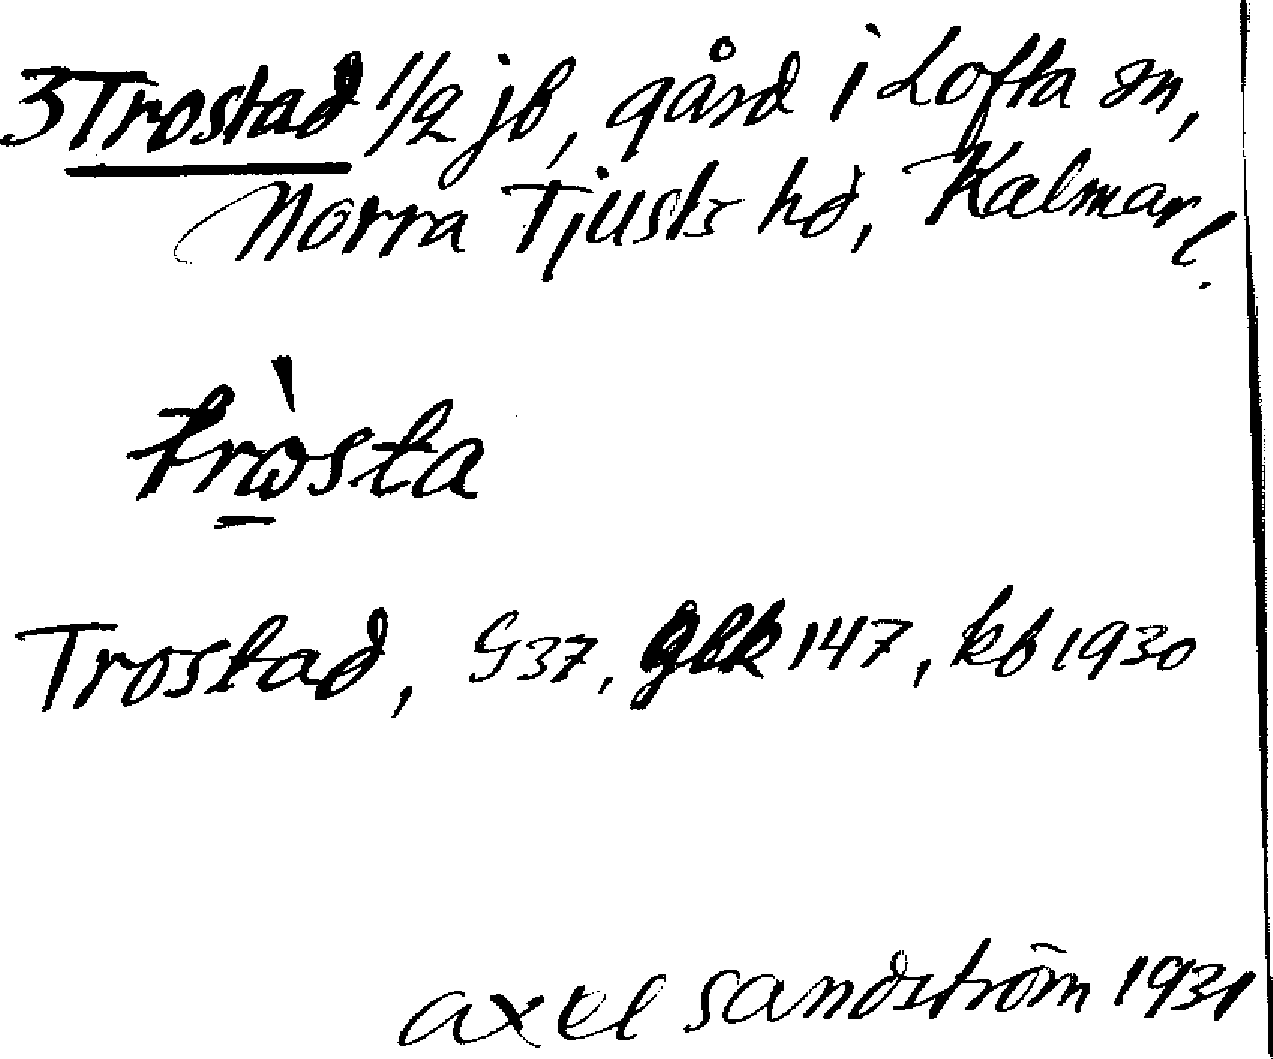 3 Trostad 1/2 jb, gård i Lofta sn,
Norra Tjusts hd, Kalmar l.
tròsta
Trostad, G37, gbk 147, kb 1930
Axel Sandström 1931